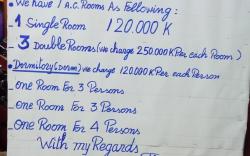 • We have 7 A.C. Rooms As Following:
1 Single Room 120.000 K
3 Double Rooms (we charge 250.000 K Per each Room)
• Dormitory (Dorm) we charge 120.000 K Per each Person
- one Room For 3 Persons
- One Room For 3 Persons
- One Room For 4 Persons
With my Regards